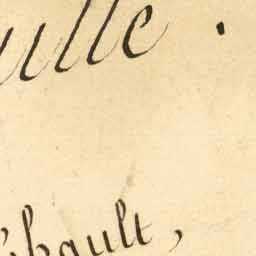 ulle.
bault,